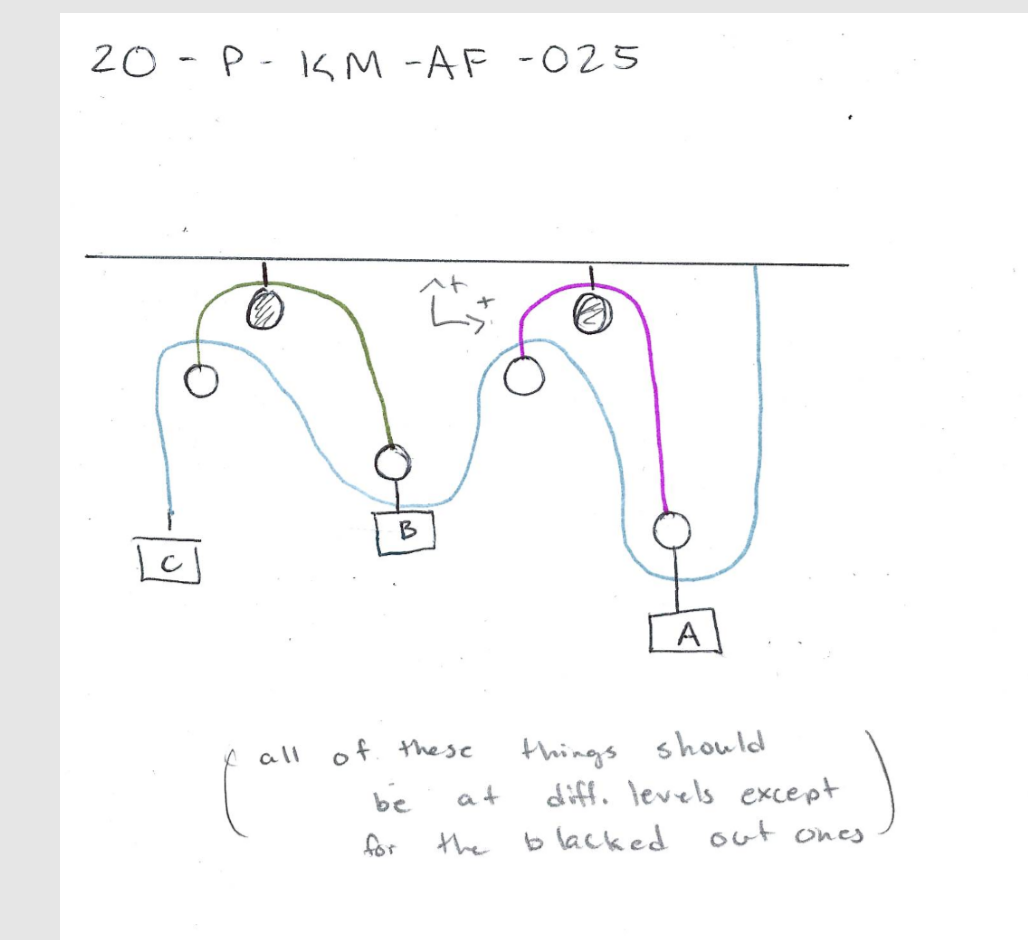 20 - P - KM - AF - 025
+
+
B
C
A
(all of these things should
be at diff. levels except
for the blacked out ones)